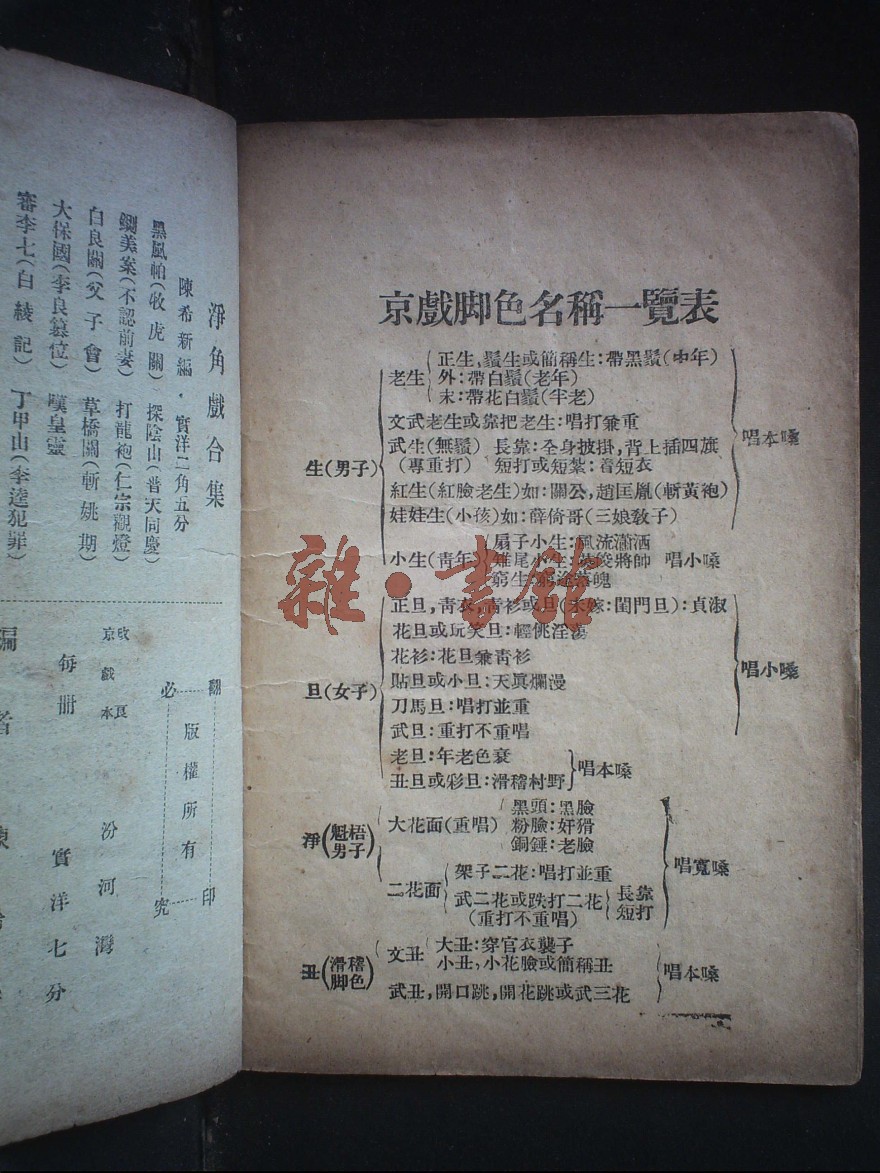 京戲脚色名稱一覽表
生(男子)
老生
正生,鬚生或簡稱生:帶黑鬚(中年)
外:帶白鬚(老年)
末:帶花白鬚(半老)
文武老生或靠把老生:唱打兼重
武生(無鬚)
(專重打)
長靠:全身披掛,背上插四旗
短打或短紮:着短衣
紅生(紅臉老生)如:關公,趙匡胤(斬黃袍)
娃娃生(小孩)如:薛倚哥(三娘敎子)
唱本嗓
小生(靑年)
扇子小生:風流瀟洒
雉尾小生:
窮生:
唱小嗓
旦(女子)
正旦,靑衣,靑衫或旦(未嫁:閨門旦):貞淑
花旦或玩笑旦:輕佻淫蕩
花衫:花旦兼靑衫
貼旦或小旦:天眞爛漫
刀馬旦:唱打並重
武旦:重打不重唱
唱小嗓
老旦:年老色衰
丑旦或彩旦:滑稽村野
唱本嗓
淨(魁梧男子)
大花面(重唱)
黑頭:黑臉
粉臉:奸猾
銅錘:老臉
二花面
架子二花:唱打並重
武二花或跌打二花
(重打不重唱)
長靠
短打
唱寬嗓
丑(滑稽脚色)
文丑
大丑:穿官衣襲子
小丑,小花臉或簡稱丑
武丑,開口跳,開花跳或武三花
唱本嗓
淨角戲合集
陳希新編.實洋二角五分
黑風帕(牧虎關) 探陰山(普天同慶)
鍘美案(不認前妻) 打龍袍(仁宗觀燈)
白良關(父子會) 草橋關(斬姚期)
大保國(李良篡位) 嘆皇靈
審李七(白綾記) 丁甲山(李逵犯罪)
翻印
版權所有
必究
京戲
汾河灣
每册 實洋七分
編者
雜·書館